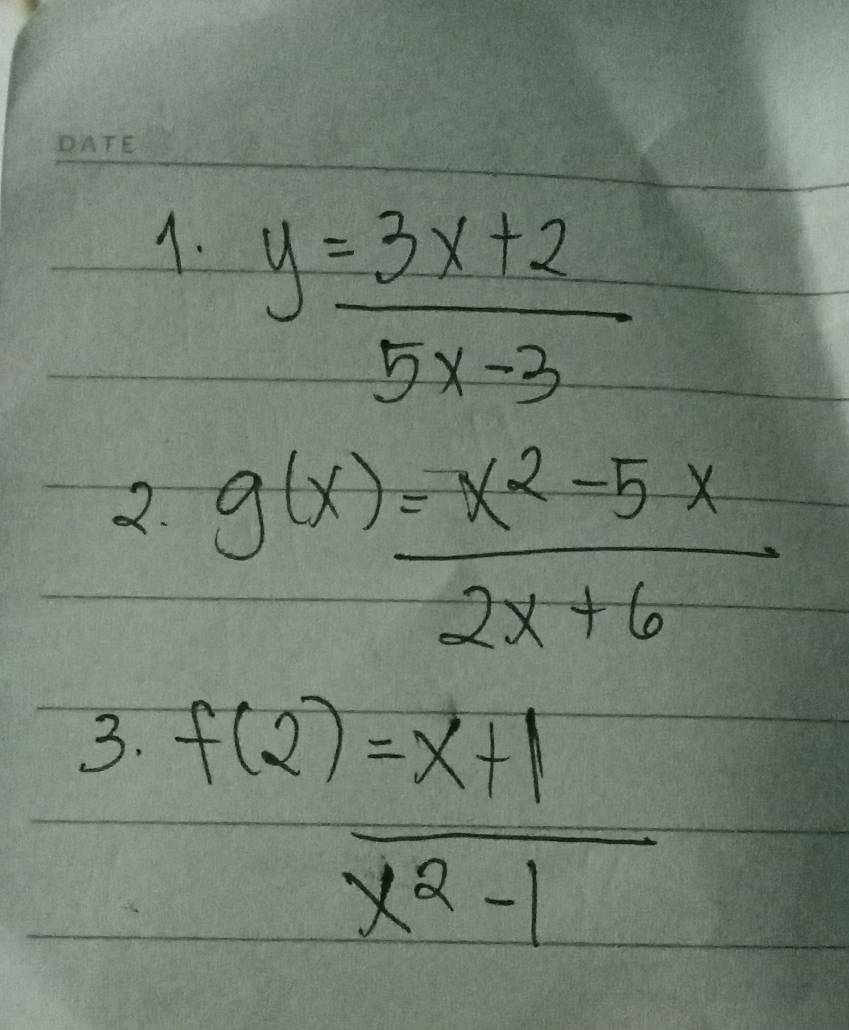 DATE
1. y = 3x+2
5x-3
2. g(x) = x2 -5 x
2x + 6
3. f(2) = x+1
x2 -1